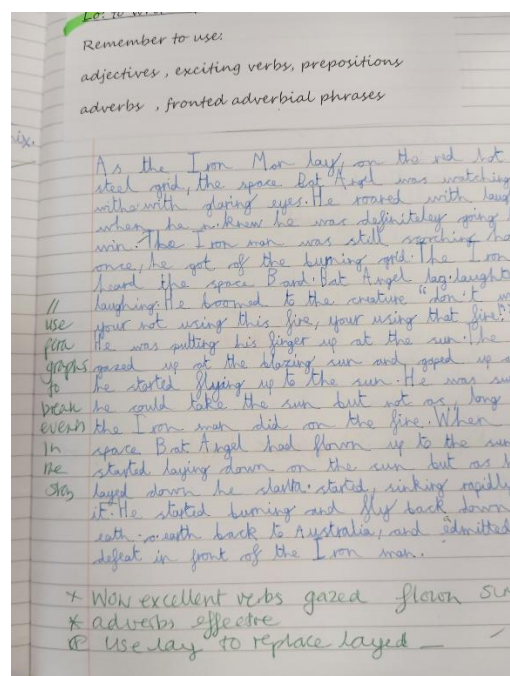 Remember to use:
adjectives , exciting verbs, prepositions
adverbs , fronted adverbial phrases
As the Iron Man lay, on the red hot
steel grid, the space Bat Angel was watching
with with glaring eyes. He roared with
when he knew he was definitely going
win. The Iron man was still scorching
once, he got of the burning grid. The Iron
heard the space Band. Bat Angel lag. laught
laughing. He boomed to the creature "don't
your not using this fire, your using that fire."
He was putting his finger up at the sun. The
gazed up at the blazing sun and gaped up
he started flying up to the sun. He was
he could take the sun but not as, long
the Iron man did on the fire. When
space Bat Angel had flown up to the sun
started laying down on the sun but as
layed down he started, sinking rapidly
it. He started burning and fly back down
eath. earth back to Australia, and admitted
defeat in front of the Iron man.
//
use
para
graphs
to
break
events
in
the
story
* Wow excellent verbs gazed flown
* adverbs effective
use lay to replace layed